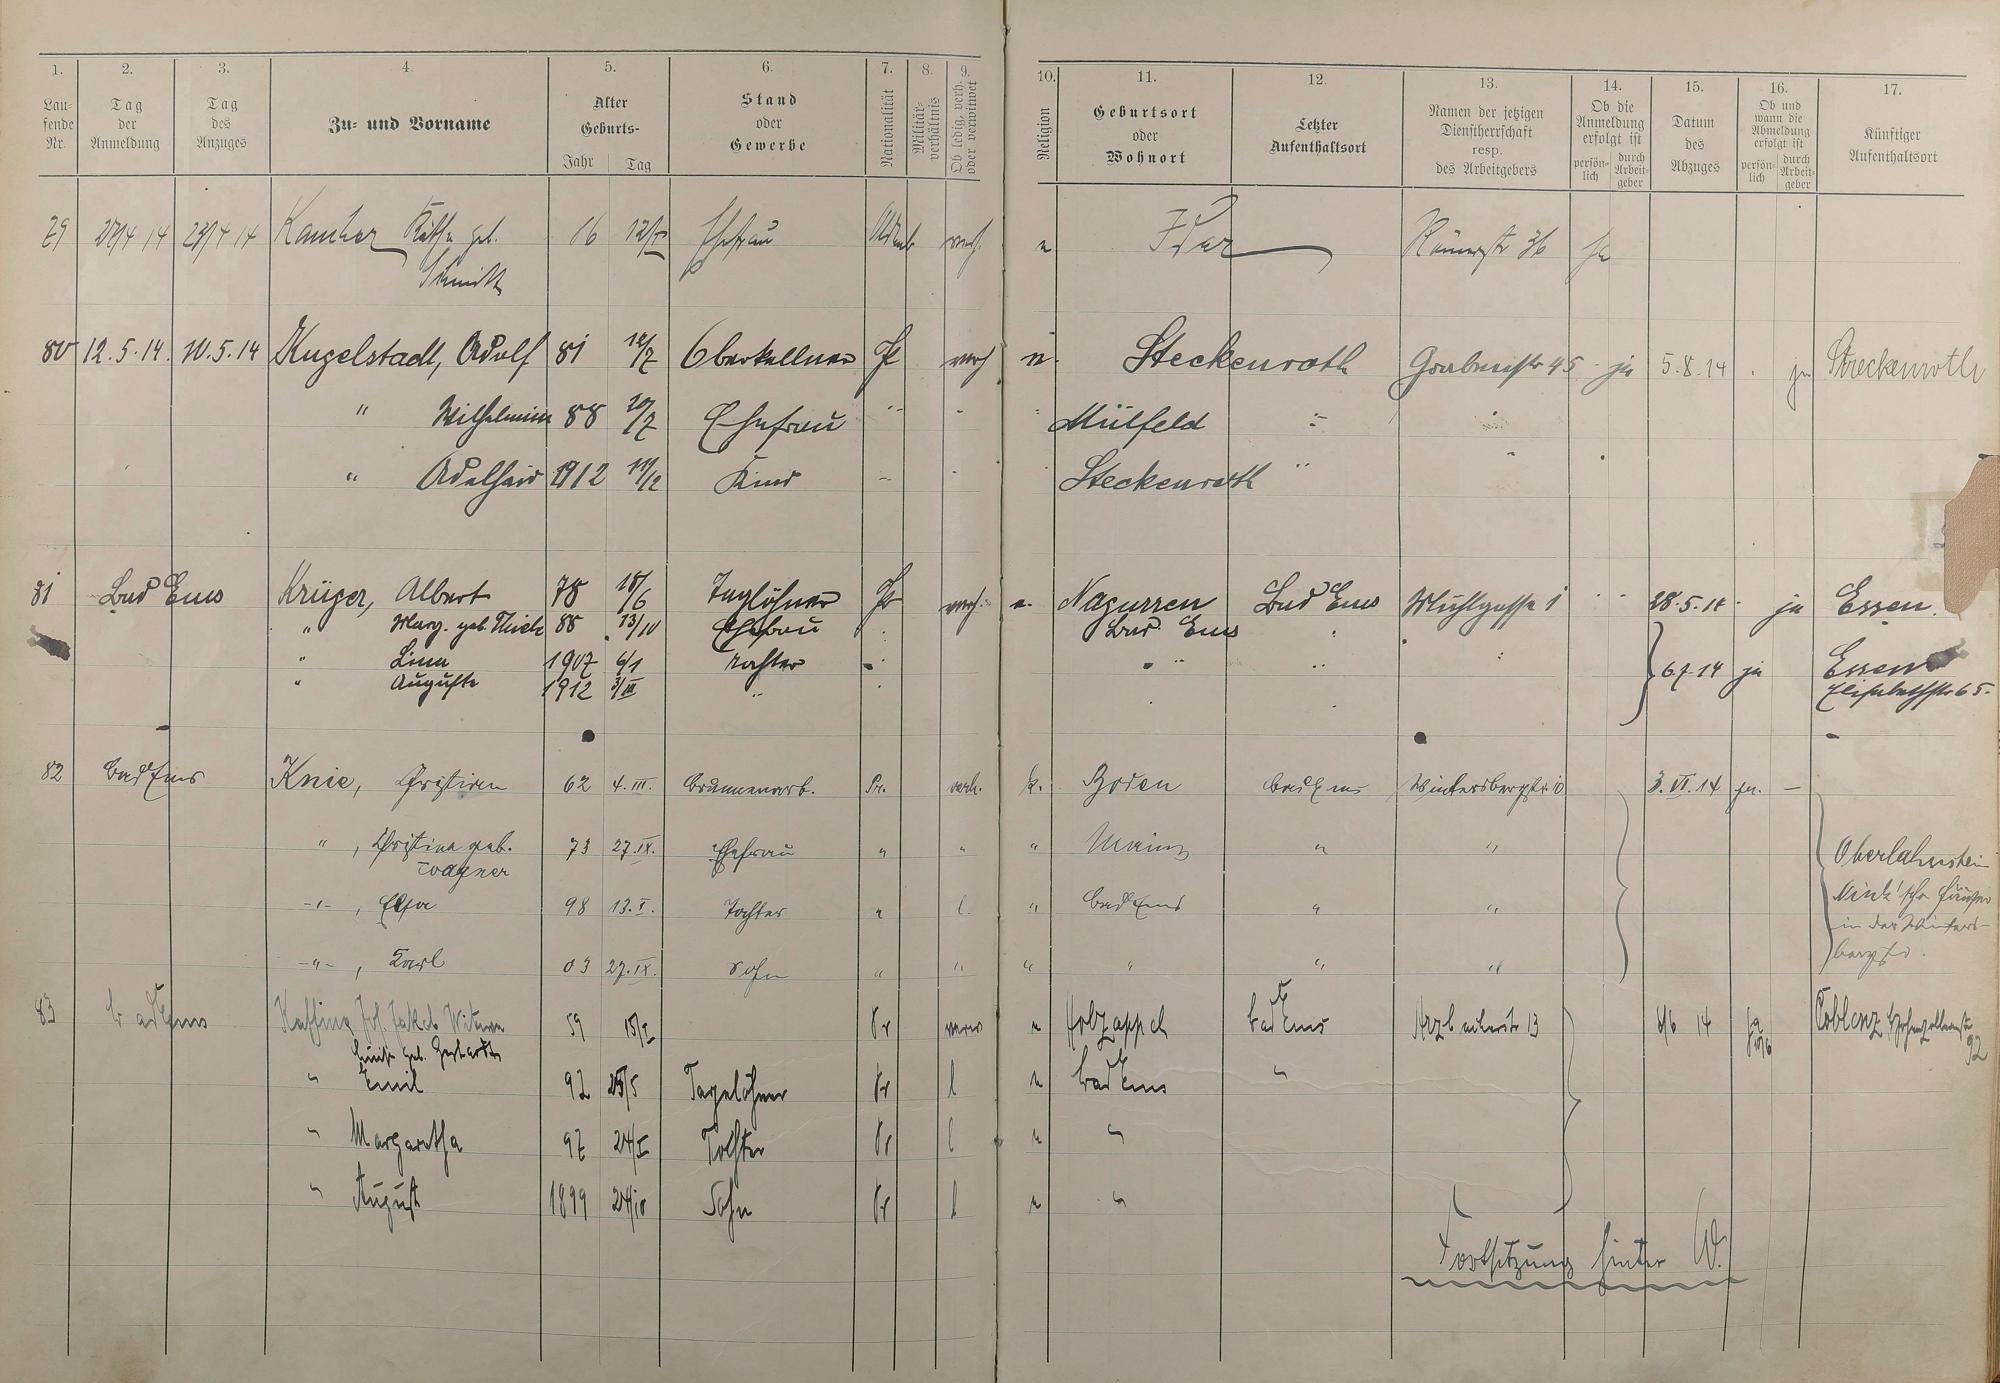 1. 2. 3. 4. 5. 6. 7. 8. 9. 10. 11. 12. 13. 14. 15. 16. 17.
Lau-
fende
Nr.
Tag
der
Anmeldung
Tag
des
Anzuges
Zu- und Vorname
Alter
Geburts-
Jahr Tag
Stand
oder
Gewerbe
Nationalität
Militär-
verhältnis
Ob ledig, verh.
oder verwitwet
Religion
Geburtsort
oder
Wohnort
Letzter
Aufenthaltsort
Namen der jetzigen
Dienstherrschaft
resp.
des Arbeitgebers
Ob die
Anmeldung
erfolgt ist
persön-
lich
durch
Arbeit-
geber
Datum
des
Abzuges
Ob und
wann die
Abmeldung
erfolgt ist
persön-
lich
durch
Arbeit-
geber
Künftiger
Aufenthaltsort
79 27/4 14 23/4 14 geb. 16 Ehefrau verh. Idar Römerstr 36 ja
Schmidt
80 12.5.14. 10.5.14 Kugelstadt, Adolf 81 12/7 Oberkellner Pr verh Steckenroth 45 ja 5.8.14 ja Streckenroth
" Wilhelmine 88 20/7 Ehefrau " Mülfeld "
" Adelheid 1912 11/2 Kind Steckenroth "
81 Bad Ems Krüger, Albert 78 18/6 Taglöhner Pr verh. e. Nagurren Bad Ems Mühlgasse 1 28.5.14. ja Essen.
" Marg. geb. Thiel 88 13/10 Ehefrau Bad Ems
" Lina 1907 6/1 Tochter " 6.7.14 ja Essen
" Auguste 1912 3/III " Elisabethstr 65.
82 Bad Ems Knie, Christian 62 4.III. Brunnenarb. Pr. verh. k. Boden Bad Ems Wintersbergstr. 10 3.VI.14 ja. —
" , Christina geb. 73 27.IX. Ehefrau " " " Mainz " " Oberlahnstein
Wagner
-"- , Elsa 98 13.V. Tochter " l. " Bad Ems " "
in der Winters-
-"- , Karl 03 27.IX. Sohn " " " " " " bergstr.
83 Bad Ems Jakob Witwe 59 15/I Pr verw Holzappel Bad Ems Arzbacherstr 13 4/6 14 ja Coblenz Hohenzollernstr
geb. Gerhardt 92
" Emil 92 25/5 Tagelöhner Pr l Bad Ems "
" Margaretha 97 24/I Tochter Pr l "
" August 1899 24/10 Sohn Pr l "
Fortsetzung hinter W.